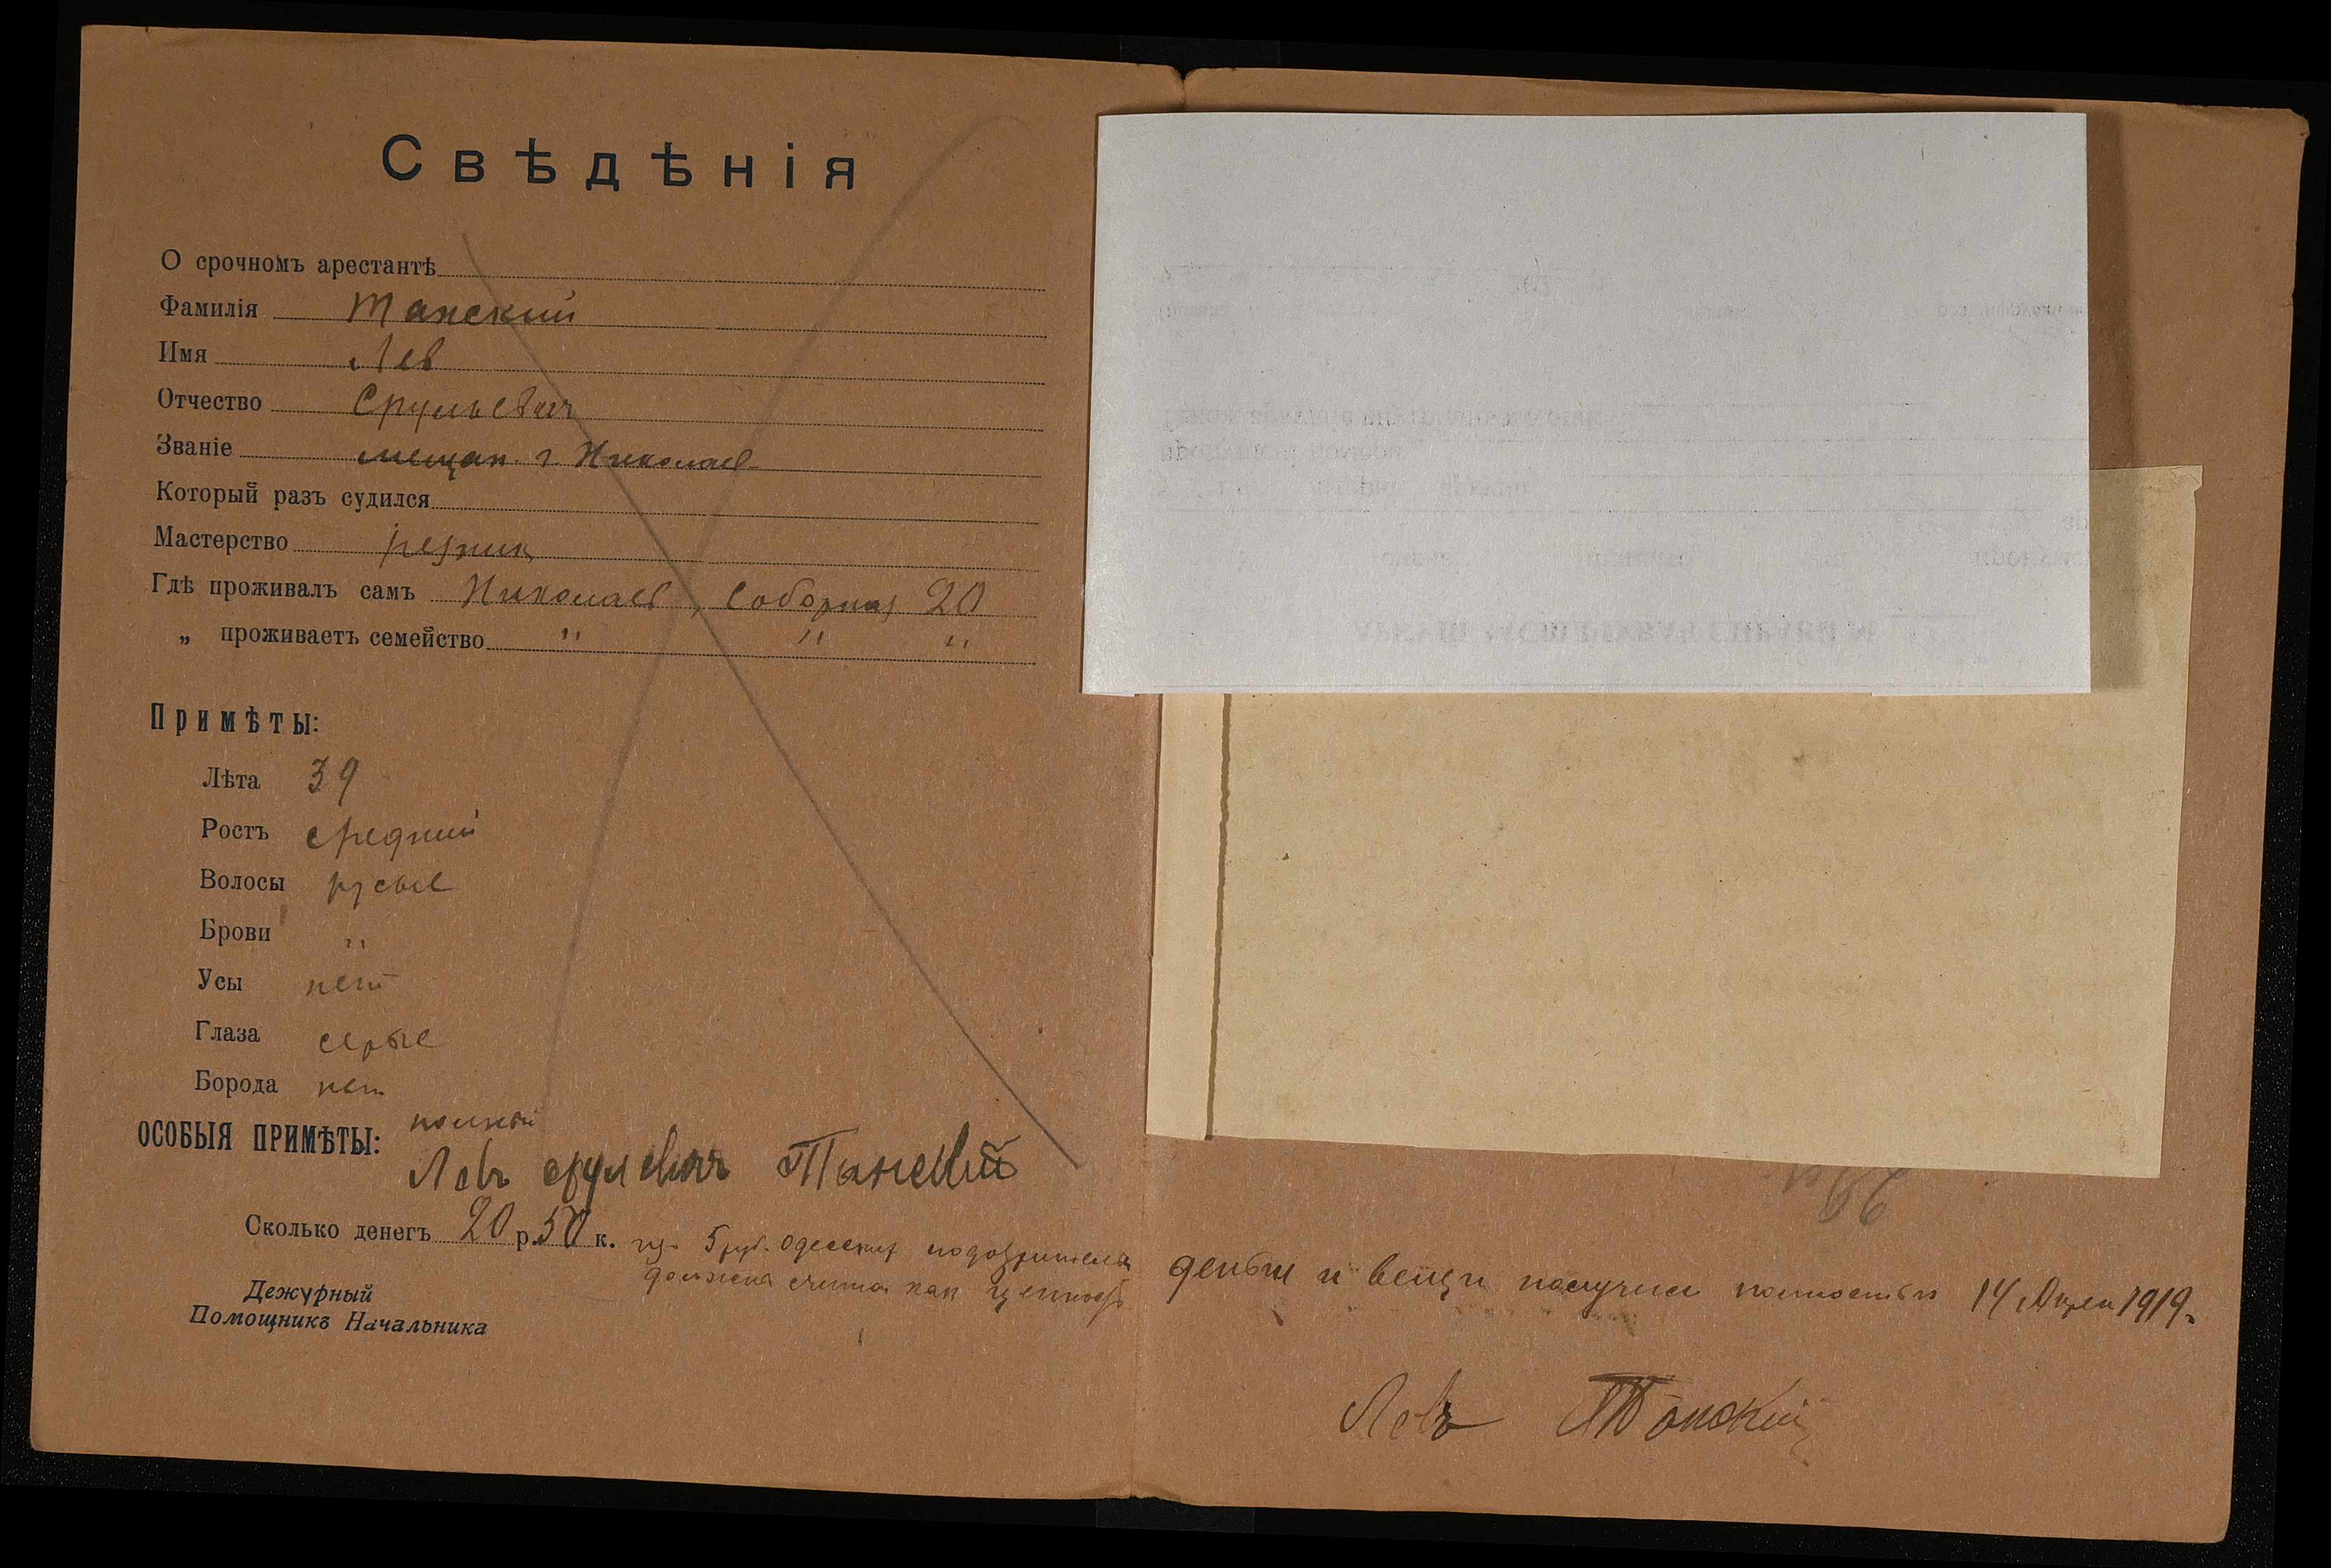 Свѣдѣнія
О срочномъ арестантѣ
Фамилія Танский
Имя Лев
Отчество Срульевич
Званіе мещан. г. Николаев
Который разъ судился
Мастерство резник
Гдѣ проживалъ самъ Николаев, Соборная 20
„ проживаетъ семейство " " "
Примѣты:
Лѣта 39
Ростъ средний
Волосы русые
Брови "
Усы нет
Глаза серые
Борода нет
ОСОБЫЯ ПРИМѢТЫ: полный
Левъ Срулевич Танский
Сколько денегъ 20 р. 50 к. из 5 руб. одесских
должна как ценность
Дежурный
Помощникъ Начальника
деньги и вещи получил полностью 14 Апреля 1919 г.
Левъ Танский